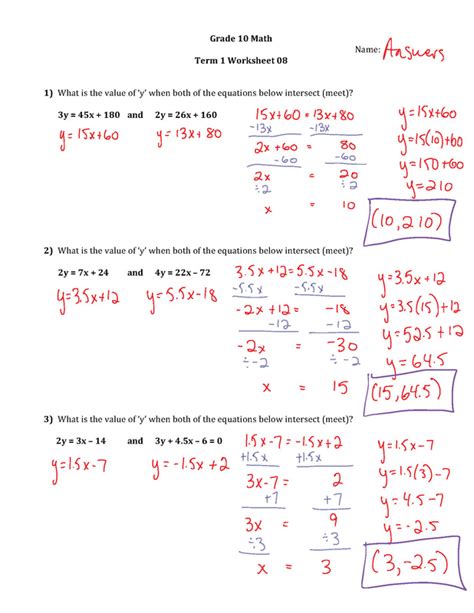 Grade 10 Math
Name: Answers
Term 1 Worksheet 08
1) What is the value of 'y' when both of the equations below intersect (meet)?
3y = 45x + 180 and 2y = 26x + 160
y = 15x+60 y = 13x + 80
15x+60 = 13x+80
-13x -13x
2x +60 = 80
-60 -60
2x = 20
÷2 ÷2
x = 10
y = 15x+60
y = 15(10)+60
y = 150+60
y = 210
(10,210)
2) What is the value of 'y' when both of the equations below intersect (meet)?
2y = 7x + 24 and 4y = 22x – 72
y = 3.5x+12 y = 5.5x-18
3.5x+12 = 5.5x-18
-5.5x -5.5x
-2x +12 = -18
-12 -12
-2x = -30
÷-2 ÷-2
x = 15
y = 3.5x+12
y = 3.5(15)+12
y = 52.5 + 12
y = 64.5
(15,64.5)
3) What is the value of 'y' when both of the equations below intersect (meet)?
2y = 3x – 14 and 3y + 4.5x – 6 = 0
y = 1.5x-7 y = -1.5x +2
1.5x-7 = -1.5x+2
+1.5x +1.5x
3x-7 = 2
+7 +7
3x = 9
÷3 ÷3
x = 3
y = 1.5x-7
y = 1.5(3)-7
y = 4.5-7
y = -2.5
(3,-2.5)